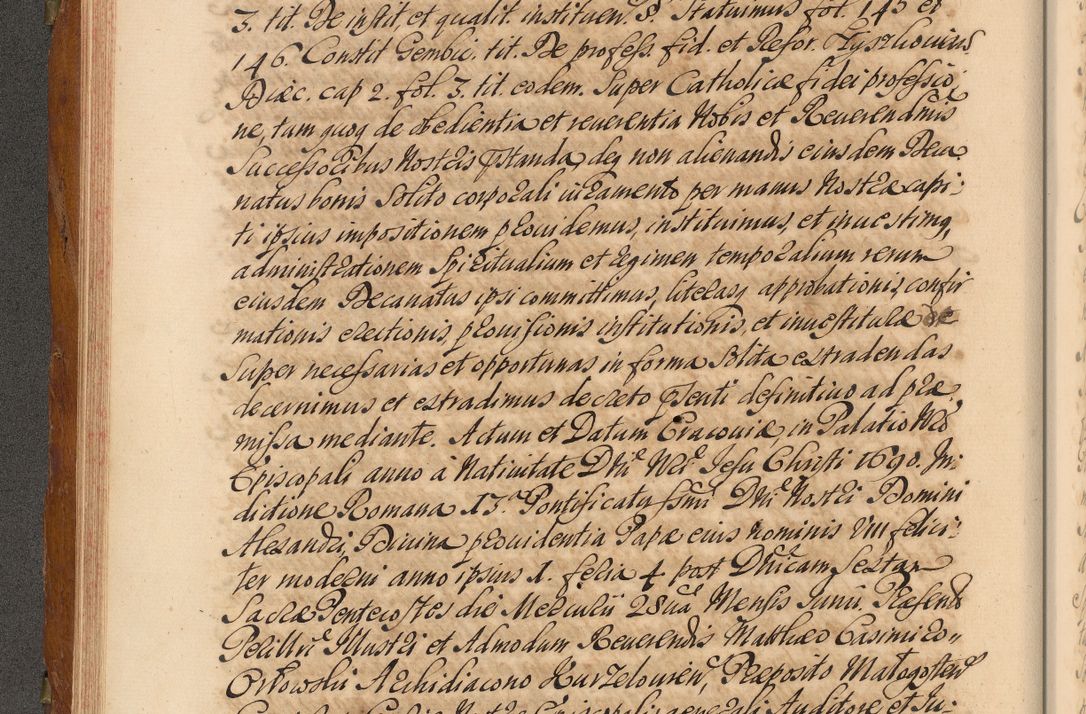 3. tit. De instit et qualit. instituen. §. Statuimus fol. 145 et
146. Constit Gembic. tit. De profess. fid. et Refor. Tyszkowius
Diæc. cap 2. fol. 3. tit. eodem. Super Catholicæ fidei professio,
ne, tam quoq de obedientia et reuerentia Nobis et Reuerendmis
Successoribus Nostris pstanda, deq non alienandis eiusdem Deca
natus bonis Solito corporali iuramento per manus Nostræ capi:
ti ipsius impositionem prouidemus, instituimus, et inuestimq
administrationem Spiritualium et regimen temporalium rerum
eiusdem Decanatus ipsi committimus, literasq approbationis, confir
mationis erectionis, prouisionis institutionis, et inuestituræ de
super necessarias et opportunas in forma Solita extradendas
decernimus et extradimus decreto psenti definitiuo ad præ,
missa mediante. Actum et Datum Cracouiæ, in Palatio Nro
Episcopali anno à Natiuitate Dni Nri Jesu Christi 1690. In:
dictione Romana 13. Pontificatu ssmi Dni Nostri Domini
Alexandri, Diuina prouidentia Papæ eius nominis VIII felici:
ter moderni anno ipsius 1. feria 4 post Dnicam Sextam
Sacræ Pentecostes die Mercurii 28ua Mensis Junii. Præsentb
Perillri Illustri et Admodum Reuerendis Matthæo Casimiro„
Orłowski Archidiacono Kurzelouien, Præposito Małogosten
Nostræ Episcopalis generali Auditore et Ju: